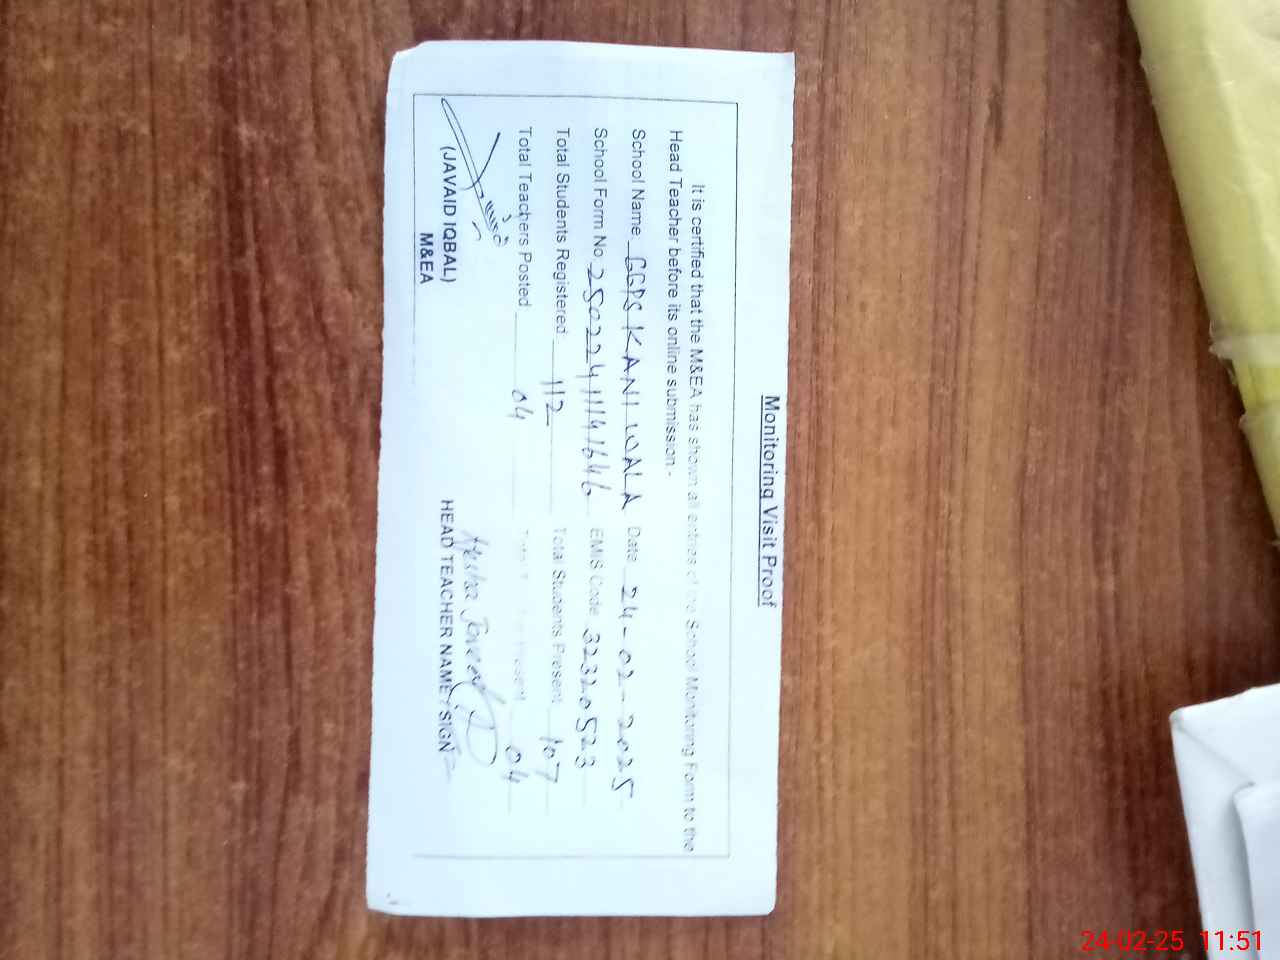 Monitoring Visit Proof
It is certified that the M&EA has shown all entries of the School Monitoring Form to the
Head Teacher before its online submission.-
School Name GGPS KANI WALA Date 24-02-2025
School Form No 25022411141646 EMIS Code 32320523
Total Students Registered 112 Total Students Present 107
Total Teachers Posted 04 Present 04
(JAVAID IQBAL)
M&EA
HEAD TEACHER NAME/SIGN
24-02-25 11:51